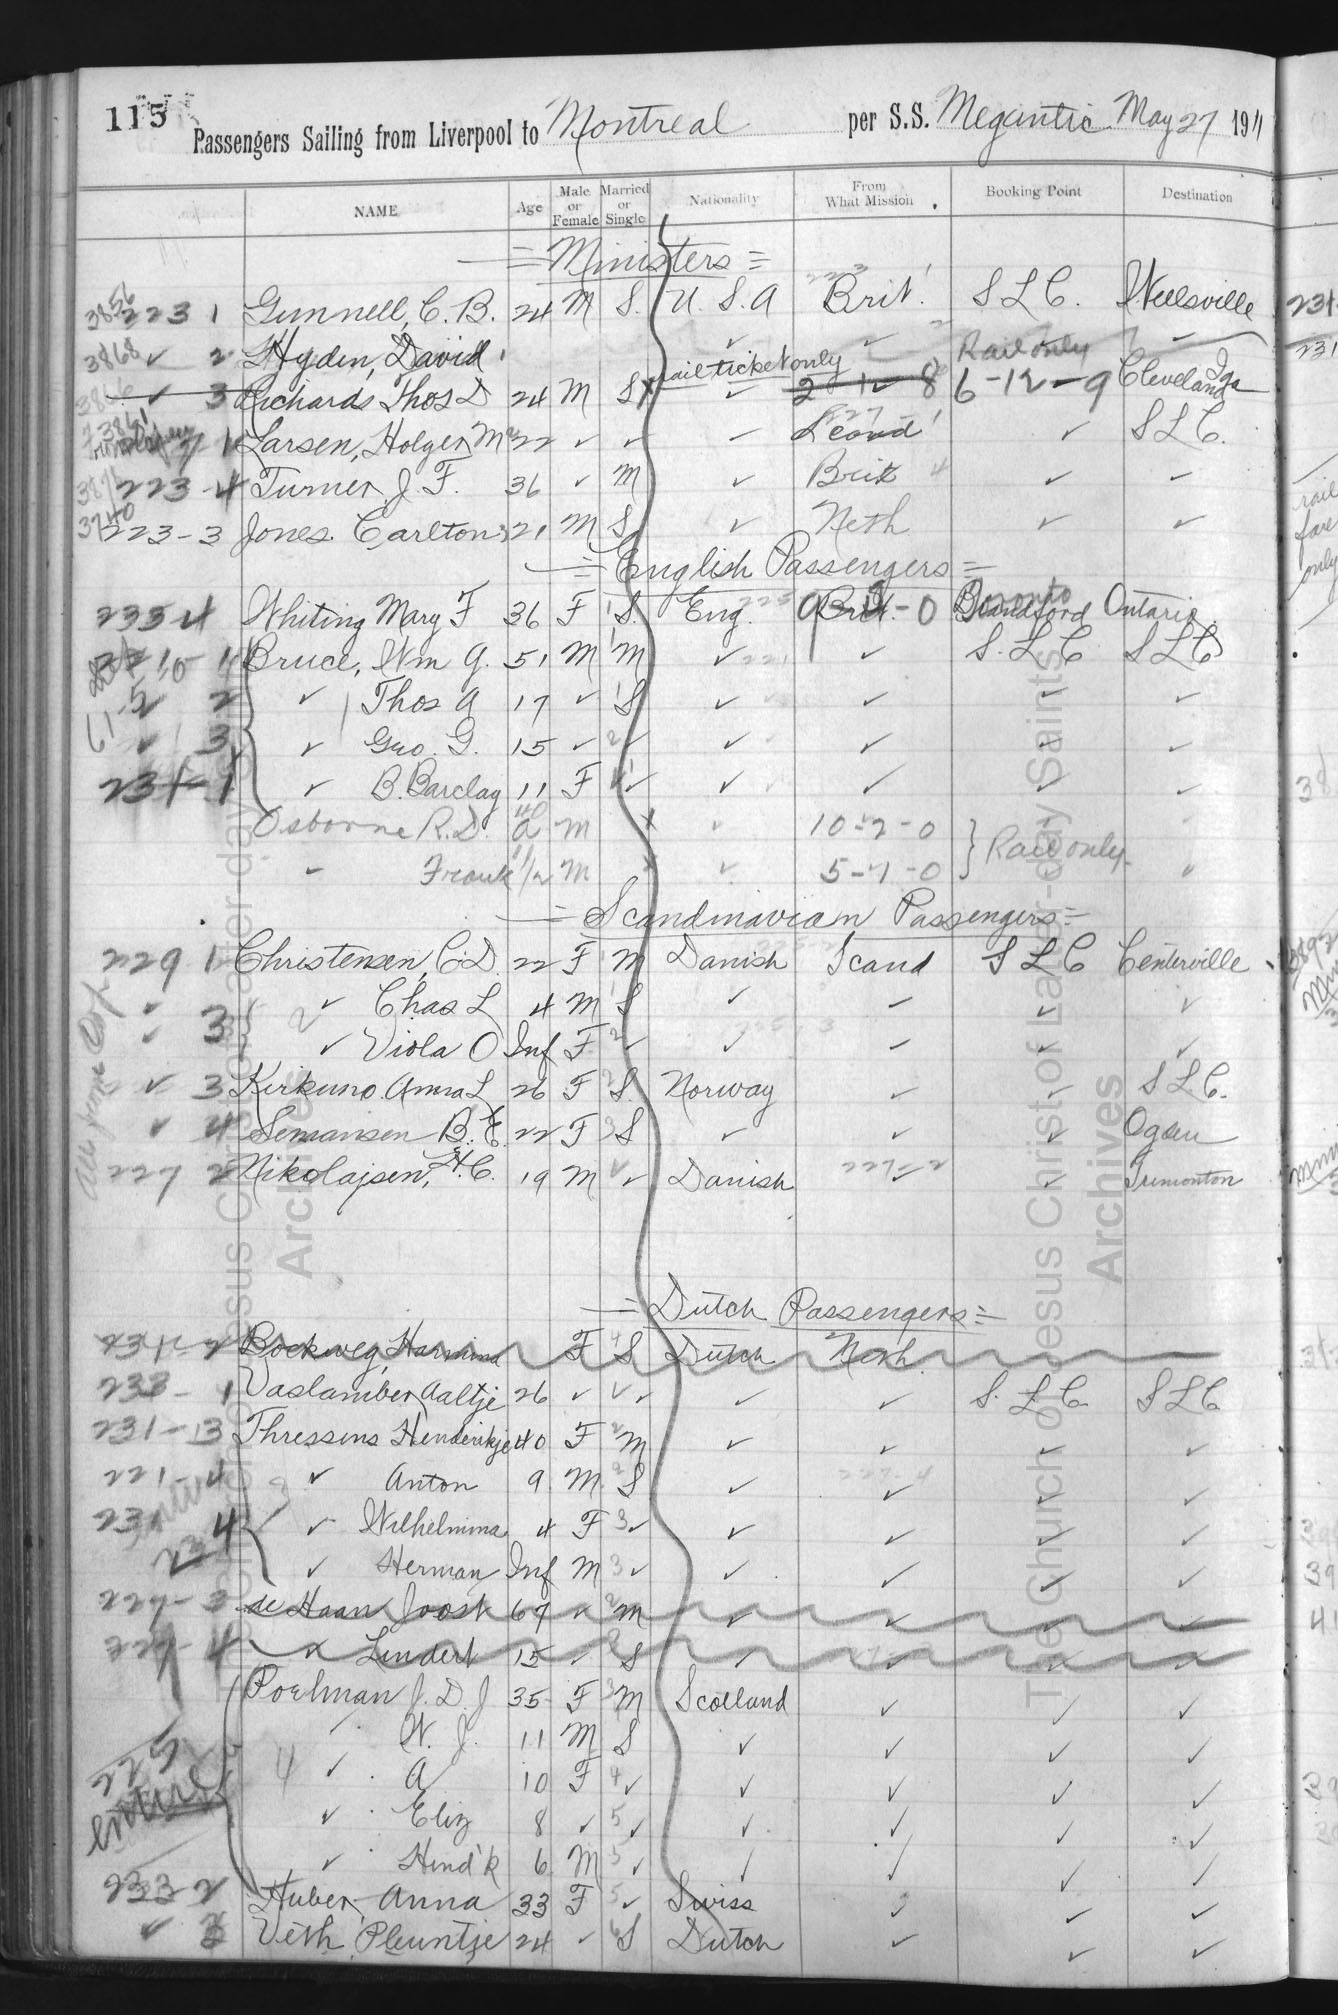 115
Passengers Sailing from Liverpool to Montreal per S.S. Megantic May 27 1911
NAME Age Male or Female Married or Single Nationality From What Mission Booking Point Destination
= Ministers =
3856 223 1 Gunnell, C. B. 24 M S. U. S. A Brit. S L C. Wellsville
3868 ✓ 2 Hyden, David ✓ ✓ Rail only ✓
✓ 3 Richards Thos D 24 M S x rail ticket only ✓ 2-12-8 6-12-9 Cleveland Ida
7 1 Larsen, Holger M 22 ✓ ✓ ✓ Scand ✓ S L C.
223-4 Turner J. F. 36 ✓ M ✓ Brit ✓ ✓
3740 223-3 Jones. Carlton 21 M S ✓ Neth ✓ ✓
= English Passengers =
4 Whiting Mary F 36 F S. Eng. 9 -0 Toronto Ontario
10-1 Bruce, Wm G. 51 M M ✓ 221 ✓ S. L C S L C
2 ✓ Thos A 17 ✓ S ✓ ✓ ✓ ✓
✓ 3 ✓ Geo. G. 15 ✓ ✓ ✓ ✓ ✓ ✓
231-1 ✓ B. Barclay 11 F ✓ ✓ ✓ ✓ ✓
Osborne R. D. a 40 M x ✓ 10-2-0 } Rail only
✓ Frank 1/2 M x ✓ 5-1-0 ✓
= Scandinavian Passengers =
229 1 Christensen, C. D. 22 F M Danish Scand S L C Centerville
✓ ✓ Chas L 4 M S ✓ ✓ ✓ ✓
✓ 3 ✓ Viola O Inf F ✓ ✓ ✓ ✓ ✓
✓ 3 Kirkuno Anna L 26 F S. Norway ✓ ✓ S L C.
✓ 4 Semansen B. E. 22 F S ✓ ✓ ✓ Ogden
227 2 Nikolajsen, H. C. 19 M ✓ Danish 227-2 ✓ ✓ Tremonton
= Dutch Passengers =
231-2 Bockweg, Harmina F S Dutch Neth
233-1 Vaslamber Aaltje 26 ✓ ✓ ✓ ✓ ✓ S. L C. S L C
231-13 Thressens Henderikje 40 F M ✓ ✓ ✓ ✓
221-4 ✓ Anton 9 M S ✓ 227-4 ✓ ✓ ✓
231 4 ✓ Wilhelmina 4 F ✓ ✓ ✓ ✓ ✓
234 ✓ Herman Inf M ✓ ✓ ✓ ✓ ✓
227-3 de Haan Joost 67 ✓ M ✓ ✓ ✓ ✓
227-4 ✓ Lindert 15 ✓ S ✓ ✓ ✓ ✓
Poelman J. D. J 35 F M Scotland ✓ ✓ ✓
✓ W. J. 11 M S ✓ ✓ ✓ ✓
225 4 ✓ A 10 F ✓ ✓ ✓ ✓ ✓
entire ✓ Eliz 8 ✓ ✓ ✓ ✓ ✓ ✓
✓ Hend'k 6 M ✓ ✓ ✓ ✓ ✓
233-2 Huber, Anna 33 F ✓ Swiss ✓ ✓
✓ 3 Veth Pleuntje 24 ✓ S Dutch ✓ ✓ ✓
The Church of Jesus Christ of Latter-day Saints
Archives